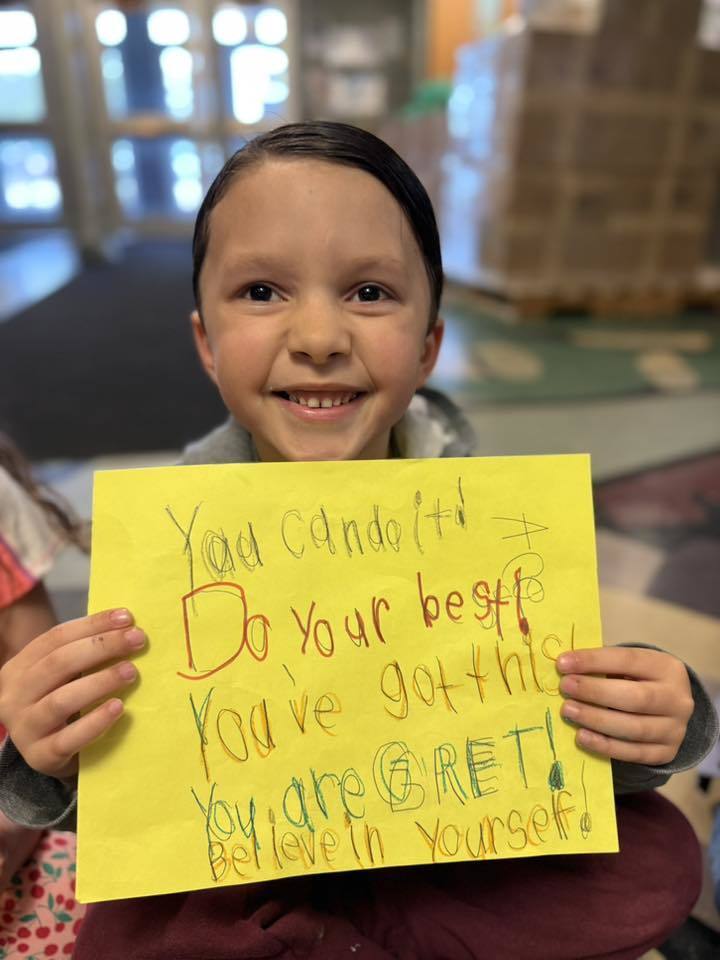 You can do it!
Do your best!
You've got this!
You are GRET!
Believe in yourself!